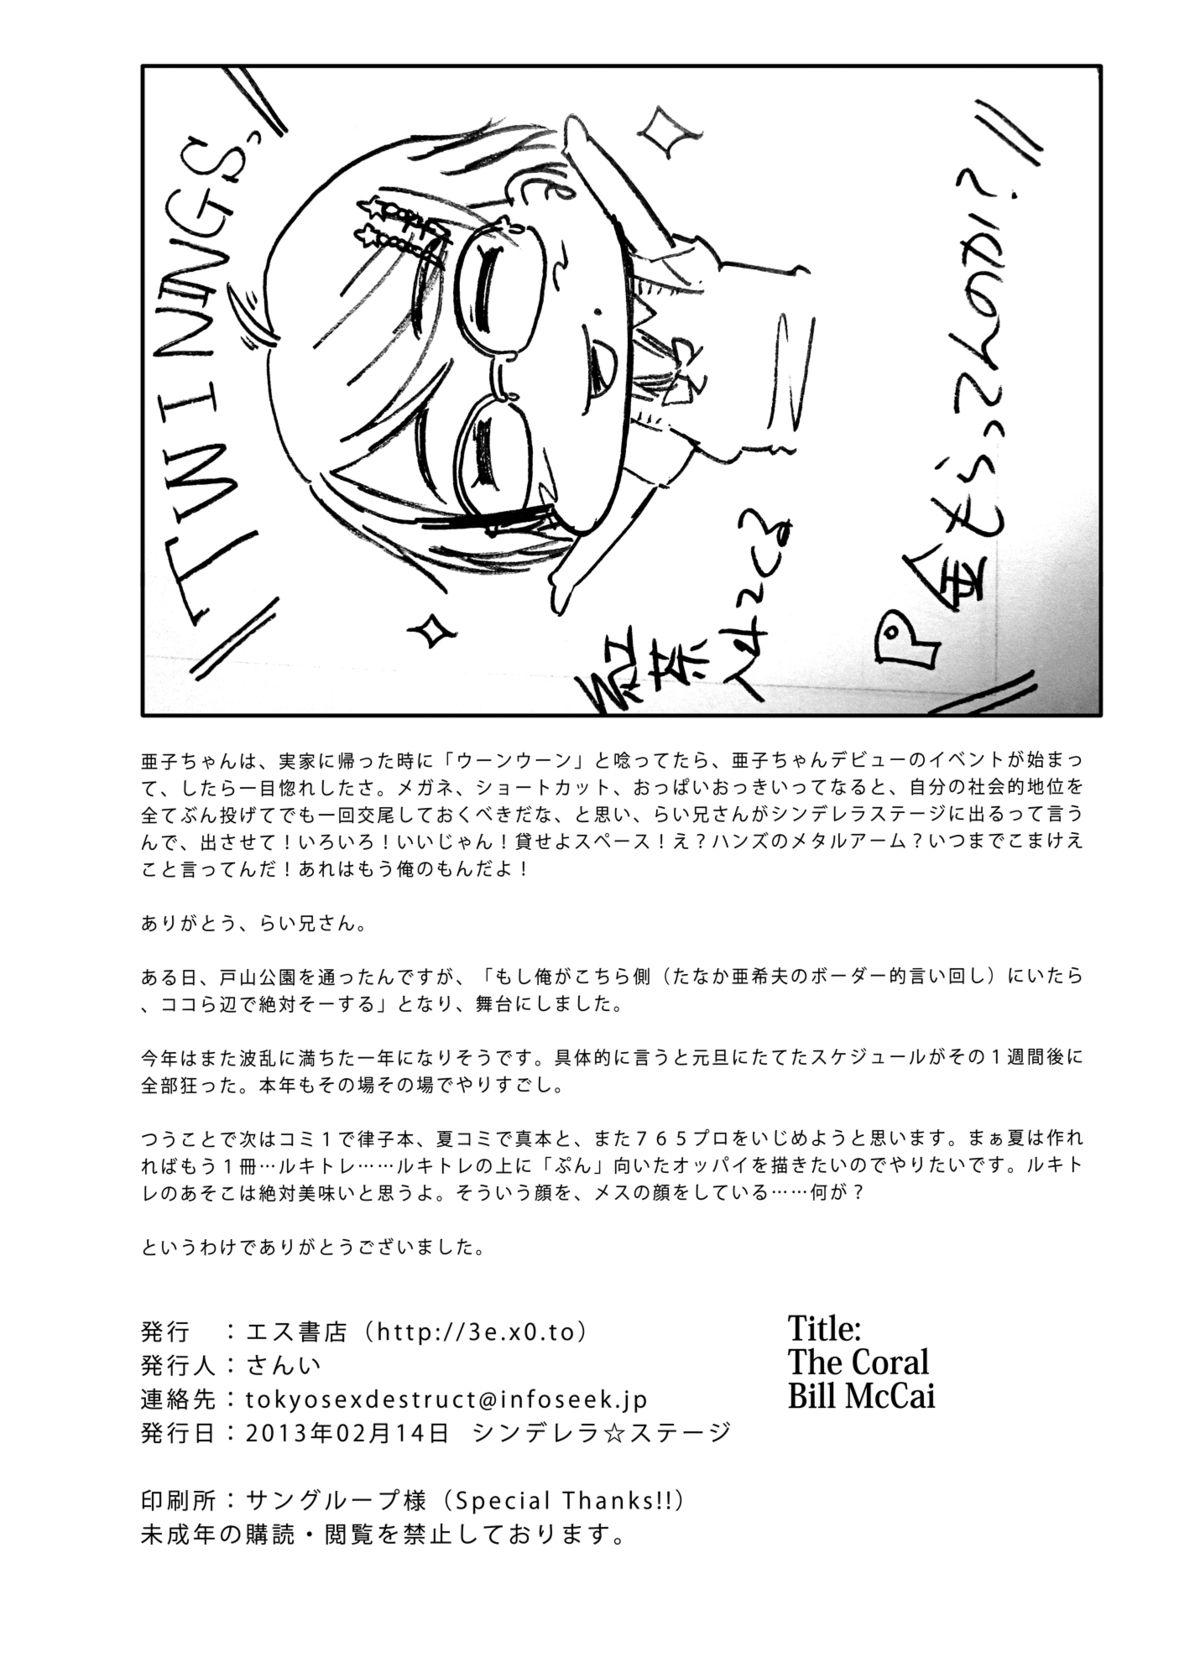 TWINGS
紅茶
入ってる
P金もらってんのか?
亜子ちゃんは、実家に帰った時に「ウーンウーン」と唸ってたら、亜子ちゃんデビューのイベントが始まっ
て、したら一目惚れしたさ。メガネ、ショートカット、おっぱいおっきいってなると、自分の社会的地位を
全てぶん投げてでも一回交尾しておくべきだな、と思い、らい兄さんがシンデレラステージに出るって言う
んで、出させて！いろいろ！いいじゃん！貸せよスペース！え？ハンズのメタルアーム？いつまでこまけえ
こと言ってんだ！あれはもう俺のもんだよ！
ありがとう、らい兄さん。
ある日、戸山公園を通ったんですが、「もし俺がこちら側（たなか亜希夫のボーダー的言い回し）にいたら
、ココら辺で絶対そーする」となり、舞台にしました。
今年はまた波乱に満ちた一年になりそうです。具体的に言うと元旦にたてたスケジュールがその１週間後に
全部狂った。本年もその場その場でやりすごし。
つうことで次はコミ１で律子本、夏コミで真本と、また７６５プロをいじめようと思います。まぁ夏は作れ
ればもう１冊…ルキトレ……ルキトレの上に「ぷん」向いたオッパイを描きたいのでやりたいです。ルキト
レのあそこは絶対美味いと思うよ。そういう顔を、メスの顔をしている……何が？
というわけでありがとうございました。
発行　：エス書店（http://3e.x0.to）
発行人：さんい
連絡先：tokyosexdestruct@infoseek.jp
発行日：2013年02月14日 シンデレラ☆ステージ
印刷所：サングループ様（Special Thanks!!）
未成年の購読・閲覧を禁止しております。
Title:
The Coral
Bill McCai